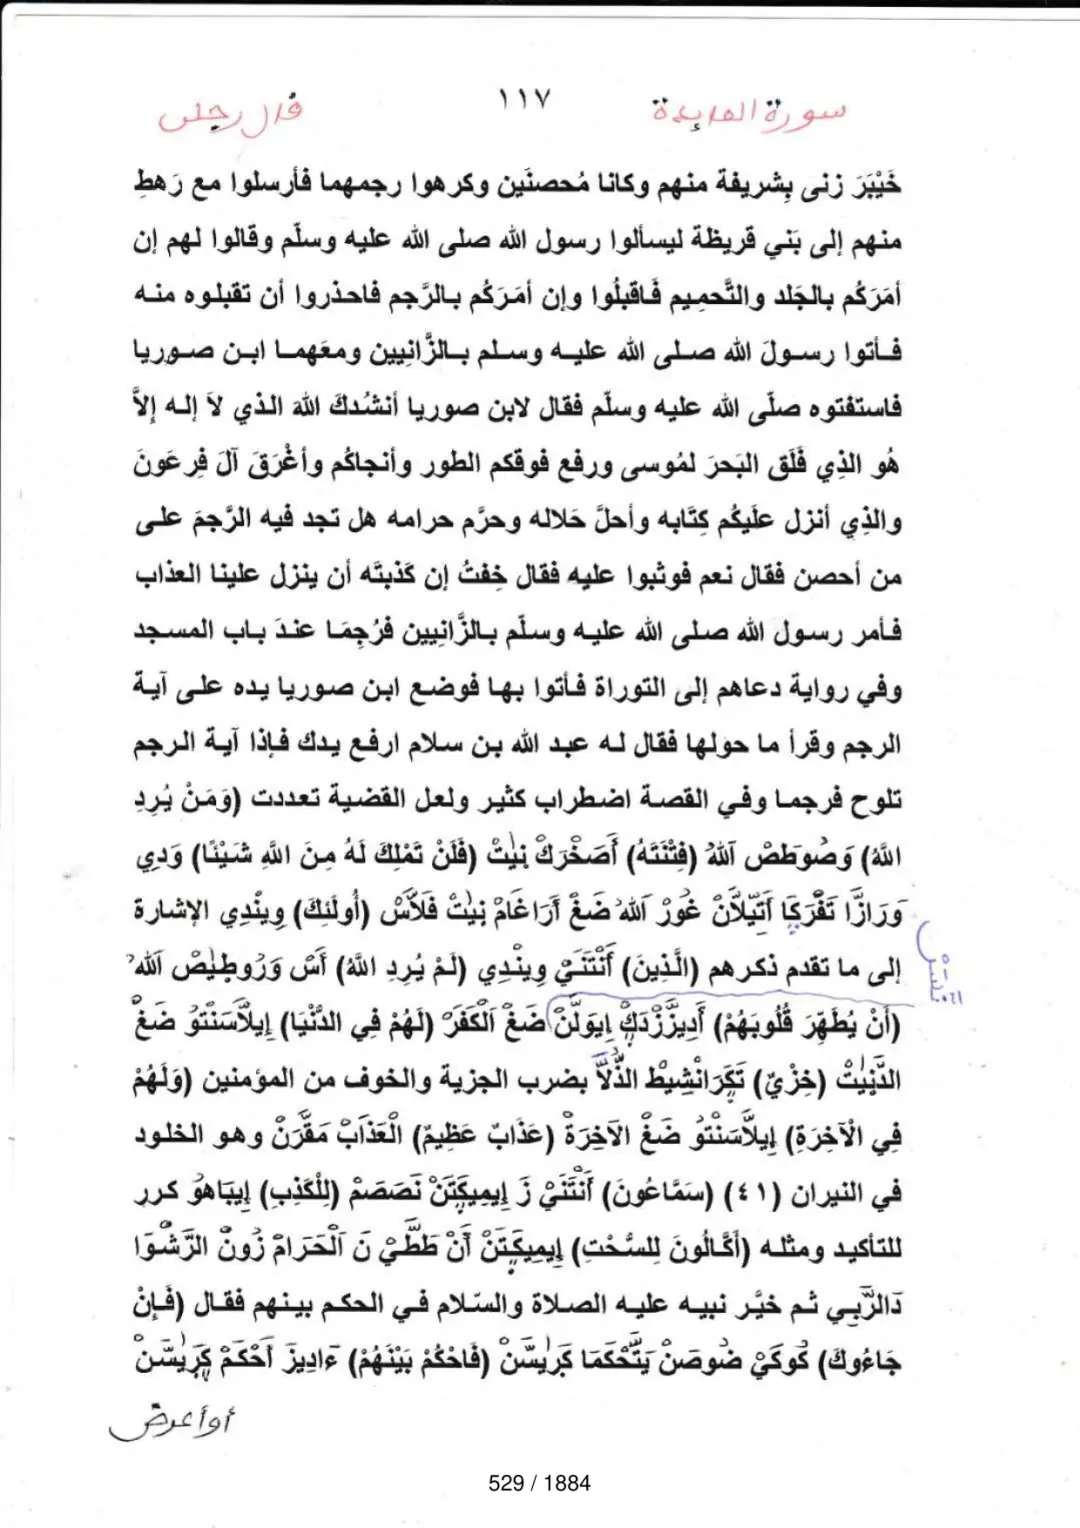 سورة المايدة
١١٧
قال رجلى
خَيْبَرَ زنى بِشريفة منهم وكانا مُحصنَين وكرهوا رجمهما فأرسلوا مع رَهطِ
منهم إلى بَني قريظة ليسألوا رسول الله صلى الله عليه وسلّم وقالوا لهم إن
أمَرَكُم بالجَلد والتَّحمِيم فَاقبلُوا وإن أمَرَكُم بالرَّجم فاحذروا أن تقبلوه منه
فأتوا رسولَ الله صلى الله عليه وسلم بالزَّانِيين ومعَهما ابن صوريا
فاستفتوه صلّى الله عليه وسلّم فقال لابن صوريا أنشُدكَ اللهَ الذي لاَ إله إلاَّ
هُو الذِي فَلَق البَحرَ لمُوسى ورفع فوقكم الطور وأنجاكُم وأغْرَقَ آلَ فِرعَونَ
والذِي أنزل علَيكُم كِتَابه وأحلَّ حَلاله وحرَّم حرامه هل تجد فيه الرَّجمَ على
من أحصن فقال نعم فوثبوا عليه فقال خِفتُ إن كَذبتَه أن ينزل علينا العذاب
فأمر رسول الله صلى الله عليه وسلّم بالزَّانِيين فرُجِمَا عندَ باب المسجد
وفي رواية دعاهم إلى التوراة فأتوا بها فوضع ابن صوريا يده على آية
الرجم وقرأ ما حولها فقال له عبد الله بن سلام ارفع يدك فإذا آية الرجم
تلوح فرجما وفي القصة اضطراب كثير ولعل القضية تعددت (وَمَنْ يُردِ
اللهُ) وَضُوطَصْ آللهُ (فِتْنَتَهُ) أَصَخْرَكْ نِيْتْ (فَلَنْ تَمْلِكَ لَهُ مِنَ اللهِ شَيْئًا) وَدِي
وَرَازًا تَفْرَكَا أَتيّلاَّنْ غُورْ آللهُ ضَغْ أَرَاغَامْ نِيْتْ فَلاَّسْ (أُولَئِكَ) وِينْدِي الإشارة
إلى ما تقدم ذكرهم (الَّذِينَ) أَنْتَنَيْ وِينْدِي (لَمْ يُرِدِ اللهُ) أسْ وَرُوطِيْصْ آللهُ
(أَنْ يُطَهِّرَ قُلُوبَهُمْ) أَدِيزَّزْدَكْ إيَولَّنْ ضَغْ آلْكَفَرْ (لَهُمْ فِي الدُّنْيَا) إيلاَّسَنْتُو ضَغْ
الدَّنِيْتْ (خِزْيٌ) تَكَرَانْشِيْطْ الذُّلاَّ بضرب الجزية والخوف من المؤمنين (وَلَهُمْ
فِي الْآخِرَةِ) إيلاَّسَنْتُو ضَغْ الآخِرَةْ (عَذَابٌ عَظِيمٌ) الْعَذَابْ مَقَّرَنْ وهو الخلود
في النيران (٤١) (سَمَّاعُونَ) أَنْتَنَيْ زَ إيمِيكَتَنْ نَصَصَمْ (لِلْكَذِبِ) إيبَاهُو كرر
للتأكيد ومثله (أَكَّالُونَ لِلسُّحْتِ) إيمِيكَتَنْ أنْ طَطَّيْ نَ آلْحَرَامْ زُونْ الرَّشْوَا
دَالرَّبِي ثم خيَّر نبيه عليه الصلاة والسّلام في الحكم بينهم فقال (فَإِنْ
جَاءُوكَ) كُوكَيْ ضُوصَنْ يَتَّحْكَمَا كَرَيْسَنْ (فَاحْكُمْ بَيْنَهُمْ) ءَادِيزَ آحْكَمْ كَرَيْسَّنْ
أو أعرض
529 / 1884